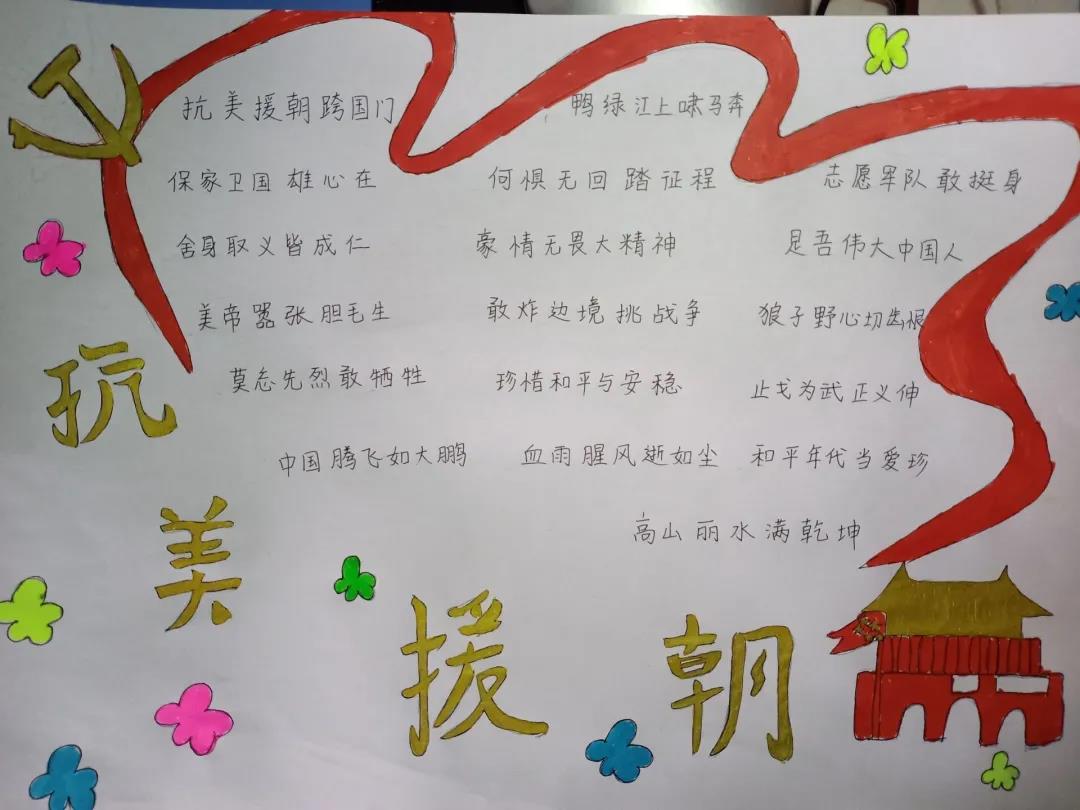 抗美援朝跨国门 鸭绿江上啸马奔
保家卫国雄心在 何惧无回踏征程 志愿军队敢挺身
舍身取义皆成仁 豪情无畏大精神 是吾伟大中国人
美帝嚣张胆毛生 敢炸边境挑战争 狼子野心切齿恨
莫忘先烈敢牺牲 珍惜和平与安稳 止戈为武正义伸
中国腾飞如大鹏 血雨腥风逝如尘 和平年代当爱珍
高山丽水满乾坤
抗
美
援朝